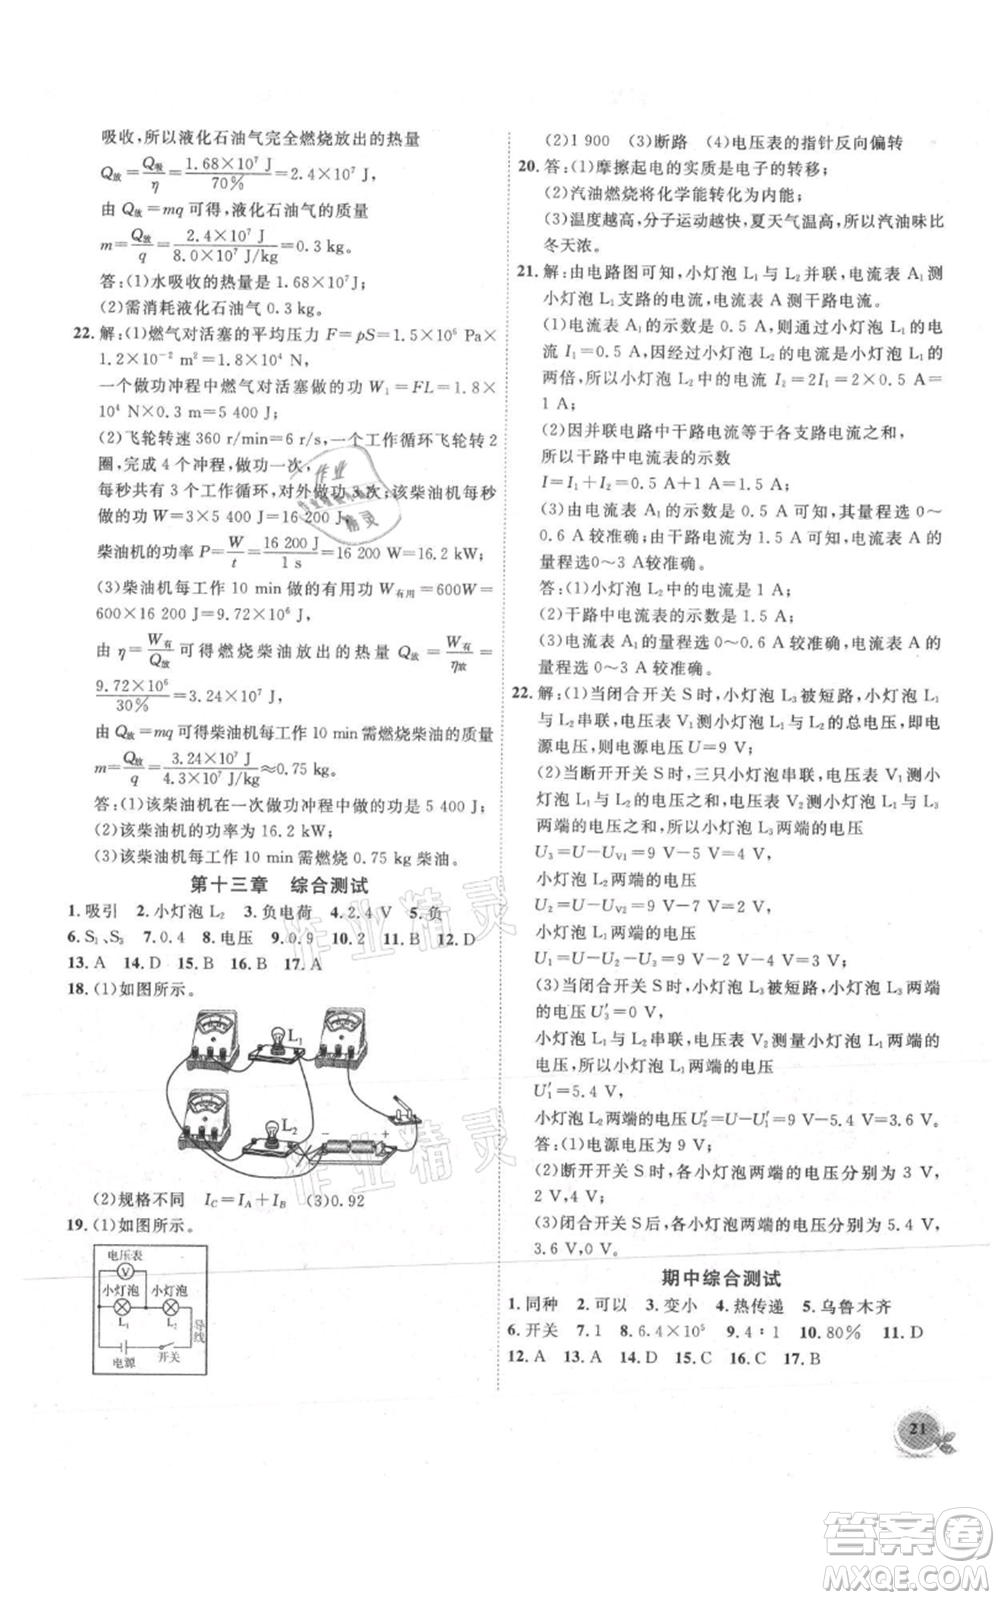 吸收,所以液化石油气完全燃烧放出的热量
Q放=Q吸/η=1.68×10⁷ J/70%=2.4×10⁷ J,
由 Q放=mq 可得,液化石油气的质量
m=Q放/q=2.4×10⁷ J/8.0×10⁷ J/kg=0.3 kg。
答:(1)水吸收的热量是 1.68×10⁷ J;
(2)需消耗液化石油气 0.3 kg。
22. 解:(1)燃气对活塞的平均压力 F=pS=1.5×10⁶ Pa×
1.2×10⁻² m²=1.8×10⁴ N,
一个做功冲程中燃气对活塞做的功 W₁=FL=1.8×
10⁴ N×0.3 m=5 400 J;
(2)飞轮转速 360 r/min=6 r/s,一个工作循环飞轮转 2
圈,完成 4 个冲程,做功一次,
每秒共有 3 个工作循环,对外做功 3 次;该柴油机每秒
做的功 W=3×5 400 J=16 200 J,
柴油机的功率 P=W/t=16 200 J/1 s=16 200 W=16.2 kW;
(3)柴油机每工作 10 min 做的有用功 W有用=600W=
600×16 200 J=9.72×10⁶ J,
由 η=W有/Q放 可得燃烧柴油放出的热量 Q放=W有/η放=
9.72×10⁶ J/30%=3.24×10⁷ J,
由 Q放=mq 可得柴油机工作 10 min 需燃烧柴油的质量
m=Q放/q=3.24×10⁷ J/4.3×10⁷ J/kg≈0.75 kg。
答:(1)该柴油机在一次做功冲程中做的功是 5 400 J;
(2)该柴油机的功率为 16.2 kW;
(3)该柴油机每工作 10 min 需燃烧 0.75 kg 柴油。
第十三章 综合测试
1. 吸引 2. 小灯泡 L₂ 3. 负电荷 4. 2.4 V 5. 负
6. S₁、S₃ 7. 0.4 8. 电压 9. 0.9 10. 2 11. B 12. D
13. A 14. D 15. B 16. B 17. A
18. (1)如图所示。
L₁
L₂
− +
(2)规格不同 I_C=I_A+I_B (3)0.92
19. (1)如图所示。
电压表
V
小灯泡 小灯泡
L₁ L₂
导线
电源 开关
(2)1 900 (3)断路 (4)电压表的指针反向偏转
20. 答:(1)摩擦起电的实质是电子的转移;
(2)汽油燃烧将化学能转化为内能;
(3)温度越高,分子运动越快,夏天气温高,所以汽油味比
冬天浓。
21. 解:由电路图可知,小灯泡 L₁ 与 L₂ 并联,电流表 A₁ 测
小灯泡 L₁ 支路的电流,电流表 A 测干路电流。
(1)电流表 A₁ 的示数是 0.5 A,则通过小灯泡 L₁ 的电
流 I₁=0.5 A,因经过小灯泡 L₂ 的电流是小灯泡 L₁ 的
两倍,所以小灯泡 L₂ 中的电流 I₂=2I₁=2×0.5 A=
1 A;
(2)因并联电路中干路电流等于各支路电流之和,
所以干路中电流表的示数
I=I₁+I₂=0.5 A+1 A=1.5 A;
(3)由电流表 A₁ 的示数是 0.5 A 可知,量程选 0~
0.6 A 较准确;由干路电流为 1.5 A 可知,电流表 A 的
量程选 0~3 A 较准确。
答:(1)小灯泡 L₂ 中的电流是 1 A;
(2)干路中电流表的示数是 1.5 A;
(3)电流表 A₁ 的量程选 0~0.6 A 较准确,电流表 A 的
量程选 0~3 A 较准确。
22. 解:(1)当闭合开关 S 时,小灯泡 L₃ 被短路,小灯泡 L₁
与 L₂ 串联,电压表 V₁ 测小灯泡 L₁ 与 L₂ 的总电压,即电
源电压,则电源电压 U=9 V;
(2)当断开开关 S 时,三只小灯泡串联,电压表 V₁ 测小
灯泡 L₁、L₂ 的电压之和,电压表 V₂ 测小灯泡 L₂、L₃
两端的电压之和,所以小灯泡 L₃ 两端的电压
U₃=U−U_V1=9 V−5 V=4 V,
小灯泡 L₂ 两端的电压
U₂=U_V2−U₃=7 V−4 V=3 V,
小灯泡 L₁ 两端的电压
U₁=U−U₂−U₃=9 V−3 V−4 V=2 V;
(3)当闭合开关 S 后,小灯泡 L₃ 被短路,小灯泡 L₃ 两端
的电压 U′₃=0 V,
小灯泡 L₁ 与 L₂ 串联,电压表 V₂ 测小灯泡 L₂ 两端的电
压,所以小灯泡 L₂ 两端的电压
U′₁=5.4 V,
小灯泡 L₂ 两端的电压 U′₂=U−U′₁=9 V−5.4 V=3.6 V。
答:(1)电源电压为 9 V;
(2)断开开关 S 时,各小灯泡两端的电压分别为 2 V、
3 V、4 V;
(3)闭合开关 S 后,各小灯泡两端的电压分别为 5.4 V、
3.6 V、0 V。
期中综合测试
1. 同种 2. 可以 3. 变小 4. 热传递 5. 乌鲁木齐
6. 开关 7. 1 8. 6.4×10⁵ 9. 4∶1 10. 80% 11. D
12. A 13. A 14. D 15. C 16. C 17. B
21
作业精灵
作业精灵
答案卷
MXQE.COM